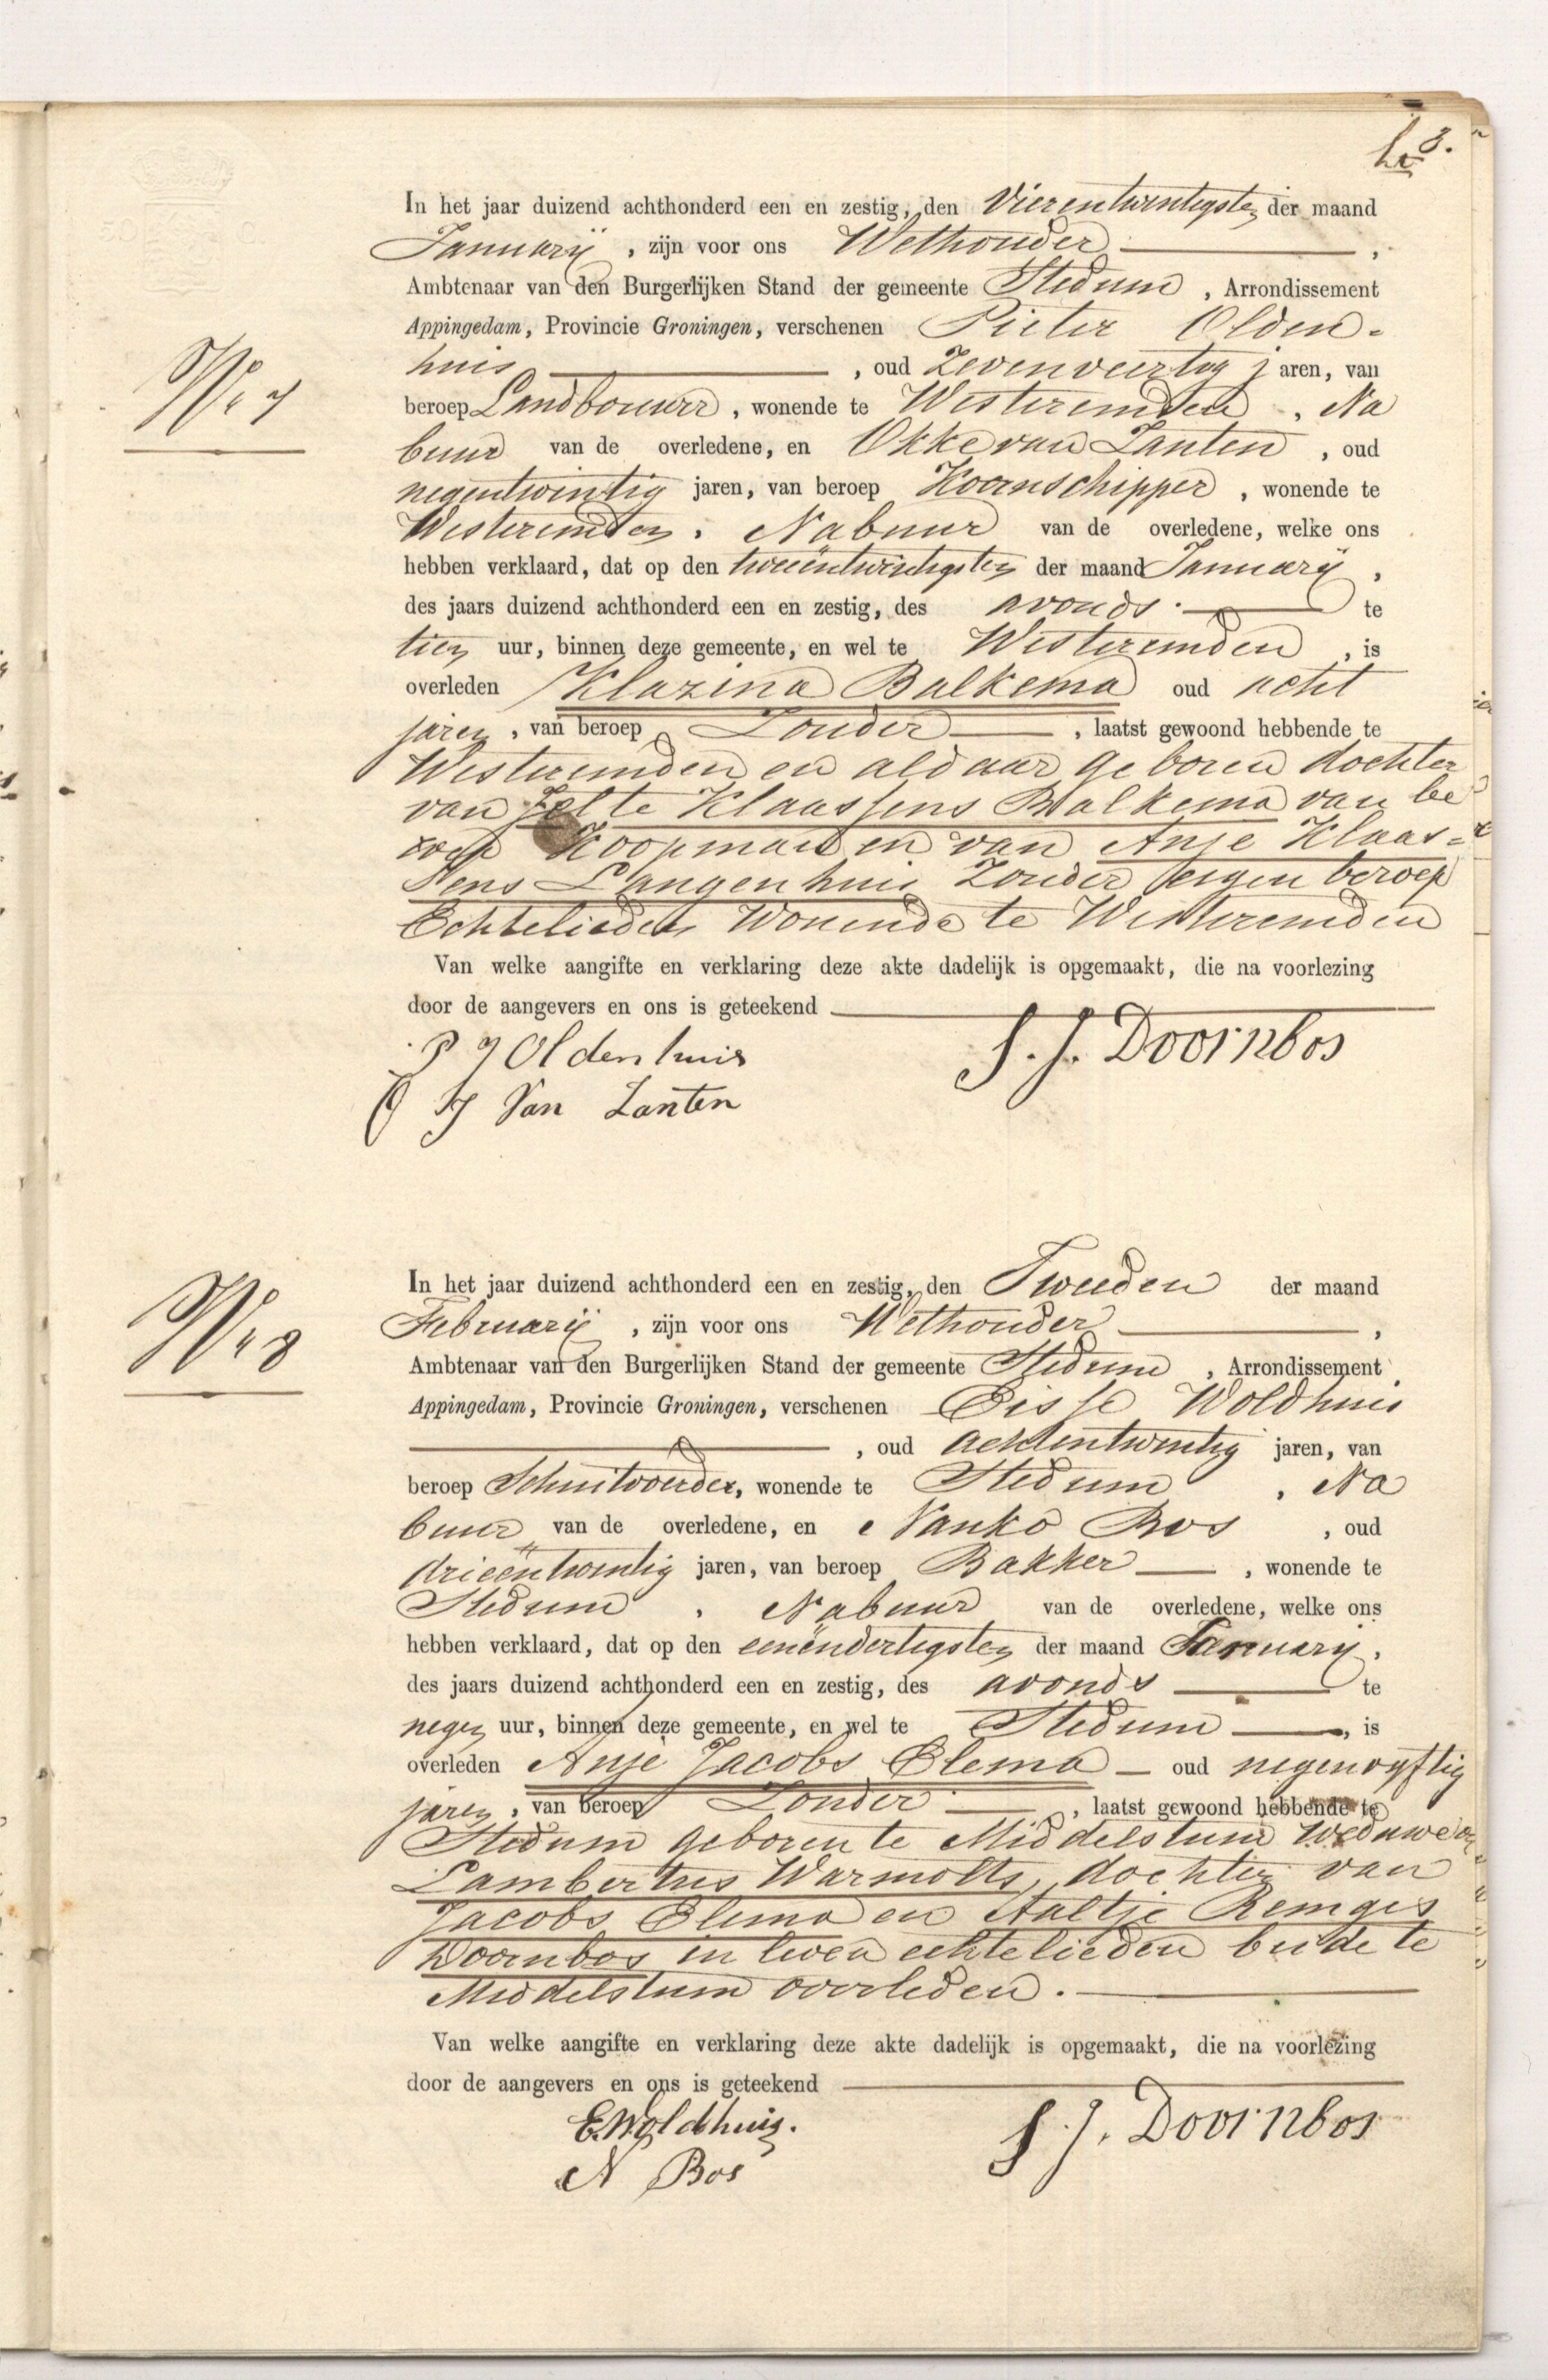 3.
In het jaar duizend achthonderd een en zestig, den Vierentwintigsten der maand
Januarij, zijn voor ons Wethouder,
Ambtenaar van den Burgerlijken Stand der gemeente Stedum, Arrondissement
Appingedam, Provincie Groningen, verschenen Pieter Olden-
huis, oud Zevenveertig jaren, van
No 7
beroep Landbouwer, wonende te Westeremden, Na
buur van de overledene, en Okke van Zanten, oud
negentwintig jaren, van beroep Koornschipper, wonende te
Westeremden, Nabuur van de overledene, welke ons
hebben verklaard, dat op den tweeëntwintigsten der maand Januarij,
des jaars duizend achthonderd een en zestig, des avonds te
tien uur, binnen deze gemeente, en wel te Westeremden, is
overleden Klazina Balkema oud acht
jaren, van beroep Zonder, laatst gewoond hebbende te
Westeremden en aldaar geboren dochter
van Jelte Klaassens Balkema van be
roep Koopman en van Anje Klaas=
sens Langenhuis Zonder eigen beroep
Echtelieden Wonende te Westeremden
Van welke aangifte en verklaring deze akte dadelijk is opgemaakt, die na voorlezing
door de aangevers en ons is geteekend
P J Oldenhuis S. J. Doornbos
O J Van Zanten
In het jaar duizend achthonderd een en zestig, den Tweeden der maand
Februarij, zijn voor ons Wethouder,
No 8
Ambtenaar van den Burgerlijken Stand der gemeente Stedum, Arrondissement
Appingedam, Provincie Groningen, verschenen Eisse Woldhuis
, oud achtentwintig jaren, van
beroep Schuitvoerder, wonende te Stedum, Na
buur van de overledene, en Nanko Bos, oud
drieëntwintig jaren, van beroep Bakker, wonende te
Stedum, Nabuur van de overledene, welke ons
hebben verklaard, dat op den eenëndertigsten der maand Januarij,
des jaars duizend achthonderd een en zestig, des avonds te
negen uur, binnen deze gemeente, en wel te Stedum, is
overleden Anje Jacobs Elema oud negenvyftig
jaren, van beroep Zonder, laatst gewoond hebbende te
Stedum geboren te Middelstum Weduwe van
Lambertus Warmolts, dochter van
Jacobs Elema en Aaltje Remges
Doornbos in leven echtelieden beide te
Middelstum overleden.
Van welke aangifte en verklaring deze akte dadelijk is opgemaakt, die na voorlezing
door de aangevers en ons is geteekend
E. Woldhuis. S. J. Doornbos
N Bos